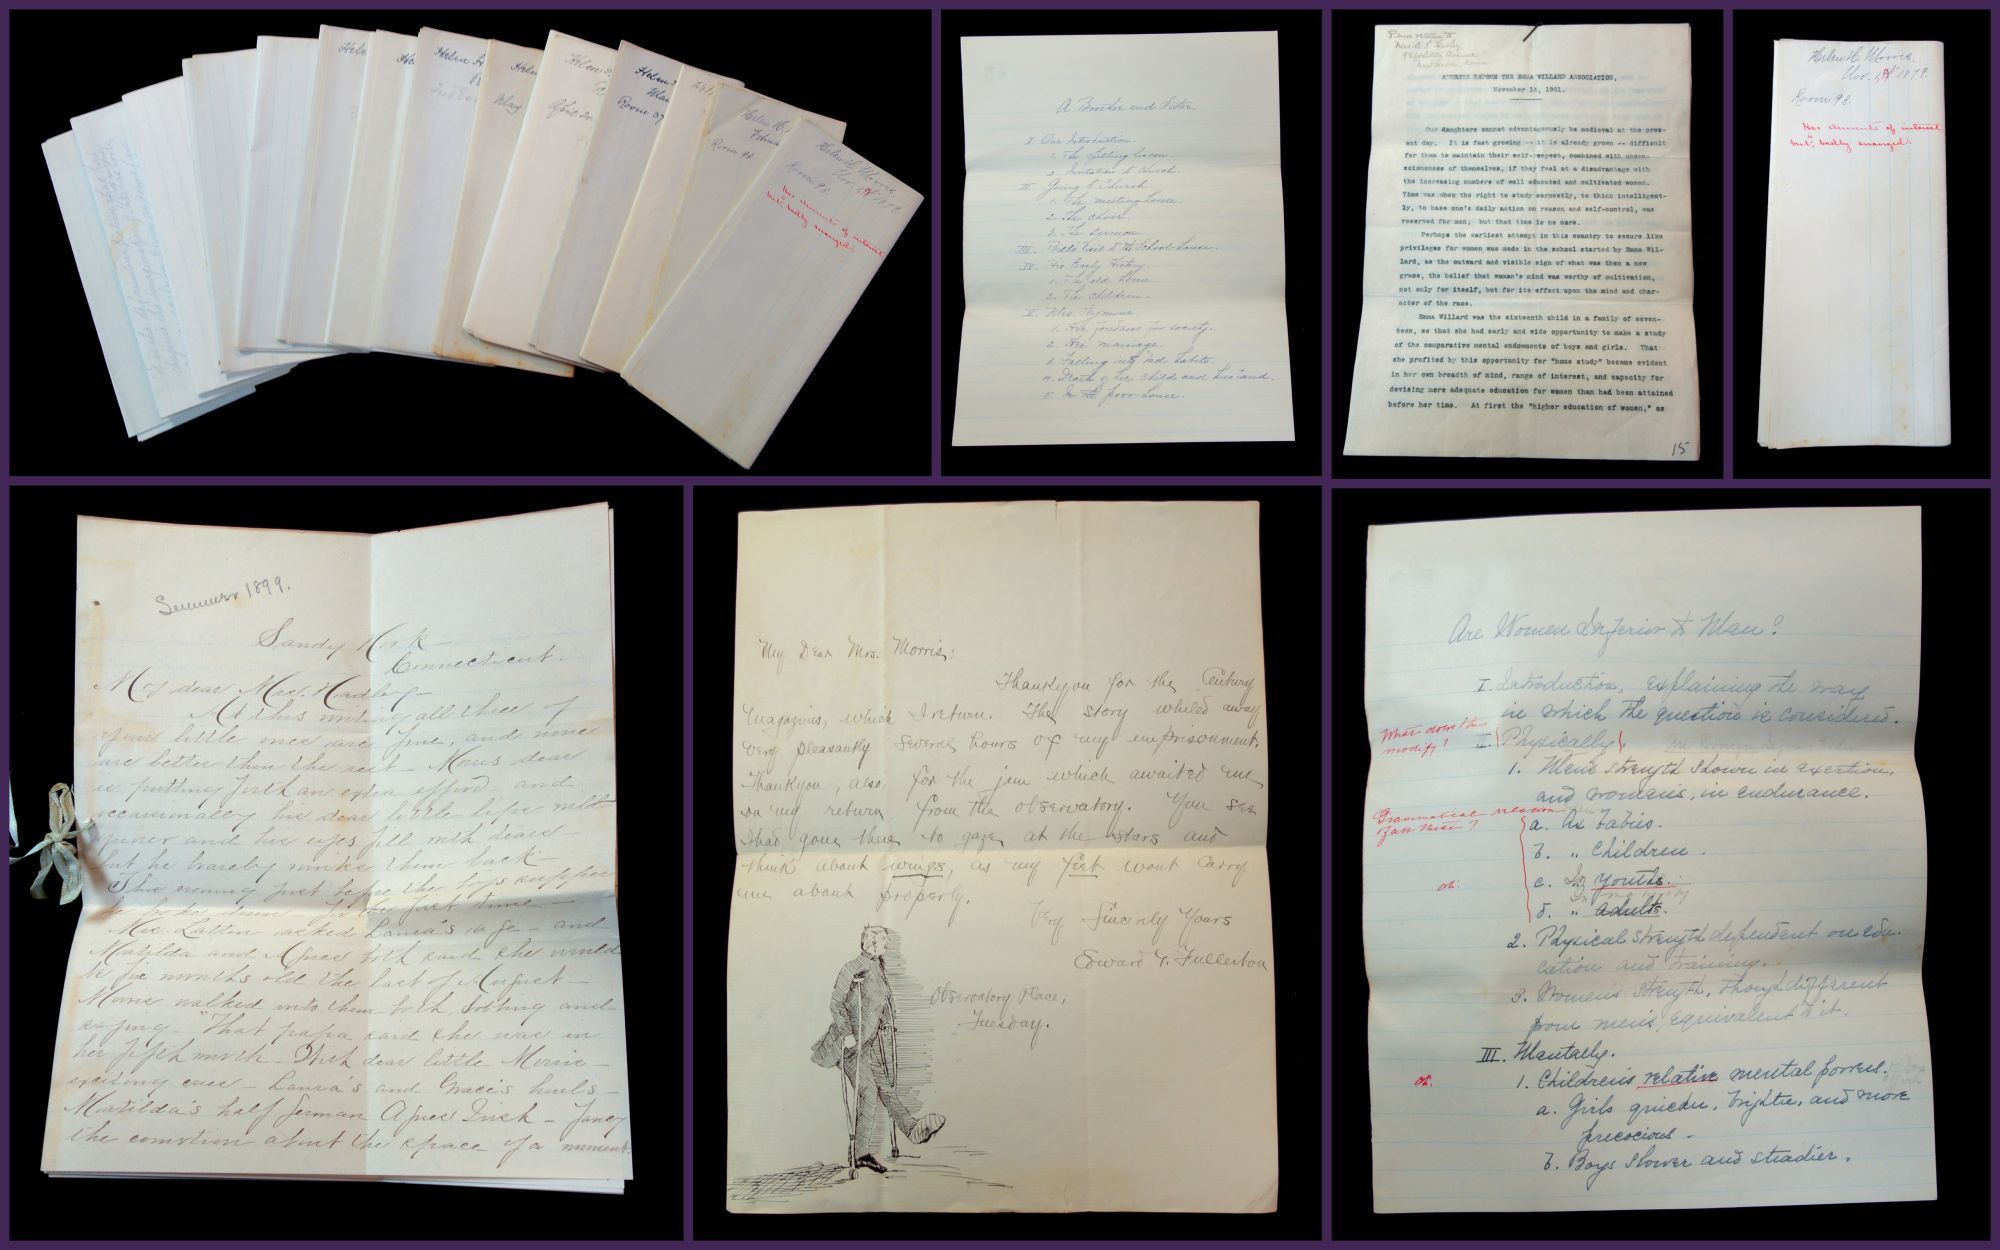 Helen
Helen H.
Helen
May
Helen
April 20
Helen
Room 37
Helen H.
Room 98
Helen H. Morris
Nov. 1st 1879.
Room 98.
Has elements of interest
but badly arranged.
A Border and Sister.
I. Our Introduction.
1. The spelling lesson.
2. Invitation to church.
II. Going to Church.
1. The meeting house.
2. The choir.
3. The sermon.
III. Bill's Visit to the School house.
IV. His Early History.
1. The old home.
2. The children.
V. Mrs. Seymour.
1. Her fondness for society.
2. Her marriage.
3. Falling into bad habits.
4. Death of her child and husband.
5. In the poor house.
Please return to
ADDRESS BEFORE THE EMMA WILLARD ASSOCIATION,
November 14, 1901.
Our daughters cannot advantageously be medieval at the pres-
ent day. It is fast growing -- it is already grown -- difficult
for them to maintain their self-respect, combined with uncon-
sciousness of themselves, if they feel at a disadvantage with
the increasing numbers of well educated and cultivated women.
Time was when the right to study earnestly, to think intelligent-
ly, to base one's daily action on reason and self-control, was
reserved for men; but that time is no more.
Perhaps the earliest attempt in this country to secure like
privileges for women was made in the school started by Emma Wil-
lard, as the outward and visible sign of what was then a new
grace, the belief that woman's mind was worthy of cultivation,
not only for itself, but for its effect upon the mind and char-
acter of the race.
Emma Willard was the sixteenth child in a family of seven-
teen, so that she had early and wide opportunity to make a study
of the comparative mental endowments of boys and girls. That
she profited by this opportunity for "home study" became evident
in her own breadth of mind, range of interest, and capacity for
devising more adequate education for women than had been attained
before her time. At first the "higher education of women," as
15
Helen H. Morris.
Nov. 1st 1879.
Room 98.
Has elements of interest
but badly arranged.
Summer 1899.
Sandy Hook
Connecticut.
My dear Mrs. Hadley
At this writing all three of
your little ones are fine, and none
are better than the rest - Morris dear
is putting forth an extra effort and
occasionally his dear little lips will
quiver and his eyes fill with tears
but he bravely winks them back -
This evening just before the boys supper
he broke down for the first time -
Mrs. Lattin asked Laura's age - and
Matilda and Agnes both said she would
be five months old the last of August -
Morris walked into them both, sobbing and
saying "That papa said she was in
her fifth month - dear little Morris -
exciting ones - Laura's and Grace's howls -
Matilda's half German Agnes Irish - fancy
the emotion about the space of a moment.
My Dear Mrs. Morris;
Thankyou for the Century
Magazines, which I return. The story whiled away
very pleasantly several hours of my imprisonment.
Thankyou, also, for the jam which awaited me
on my return from the observatory. You see
I had gone there to gaze at the stars and
think about wings, as my feet wont carry
me about properly.
Very Sincerely Yours
Edward G. Fullerton
Observatory Place,
Tuesday.
Are Women Inferior to Man?
I. Introduction, explaining the way
in which the question is considered.
What does this
modify?
II. Physically
1. Men's strength shown in exertion,
and women's, in endurance.
Grammatical relation
of all this?
a. As babies.
b. " Children.
c. In Youths.
d. " adults.
2. Physical strength dependent on edu-
cation and training.
3. Women's strength, though different
from men's, equivalent to it.
III. Mentally.
1. Children's relative mental powers.
a. Girls quicker, brighter, and more
precocious.
b. Boys slower and steadier.